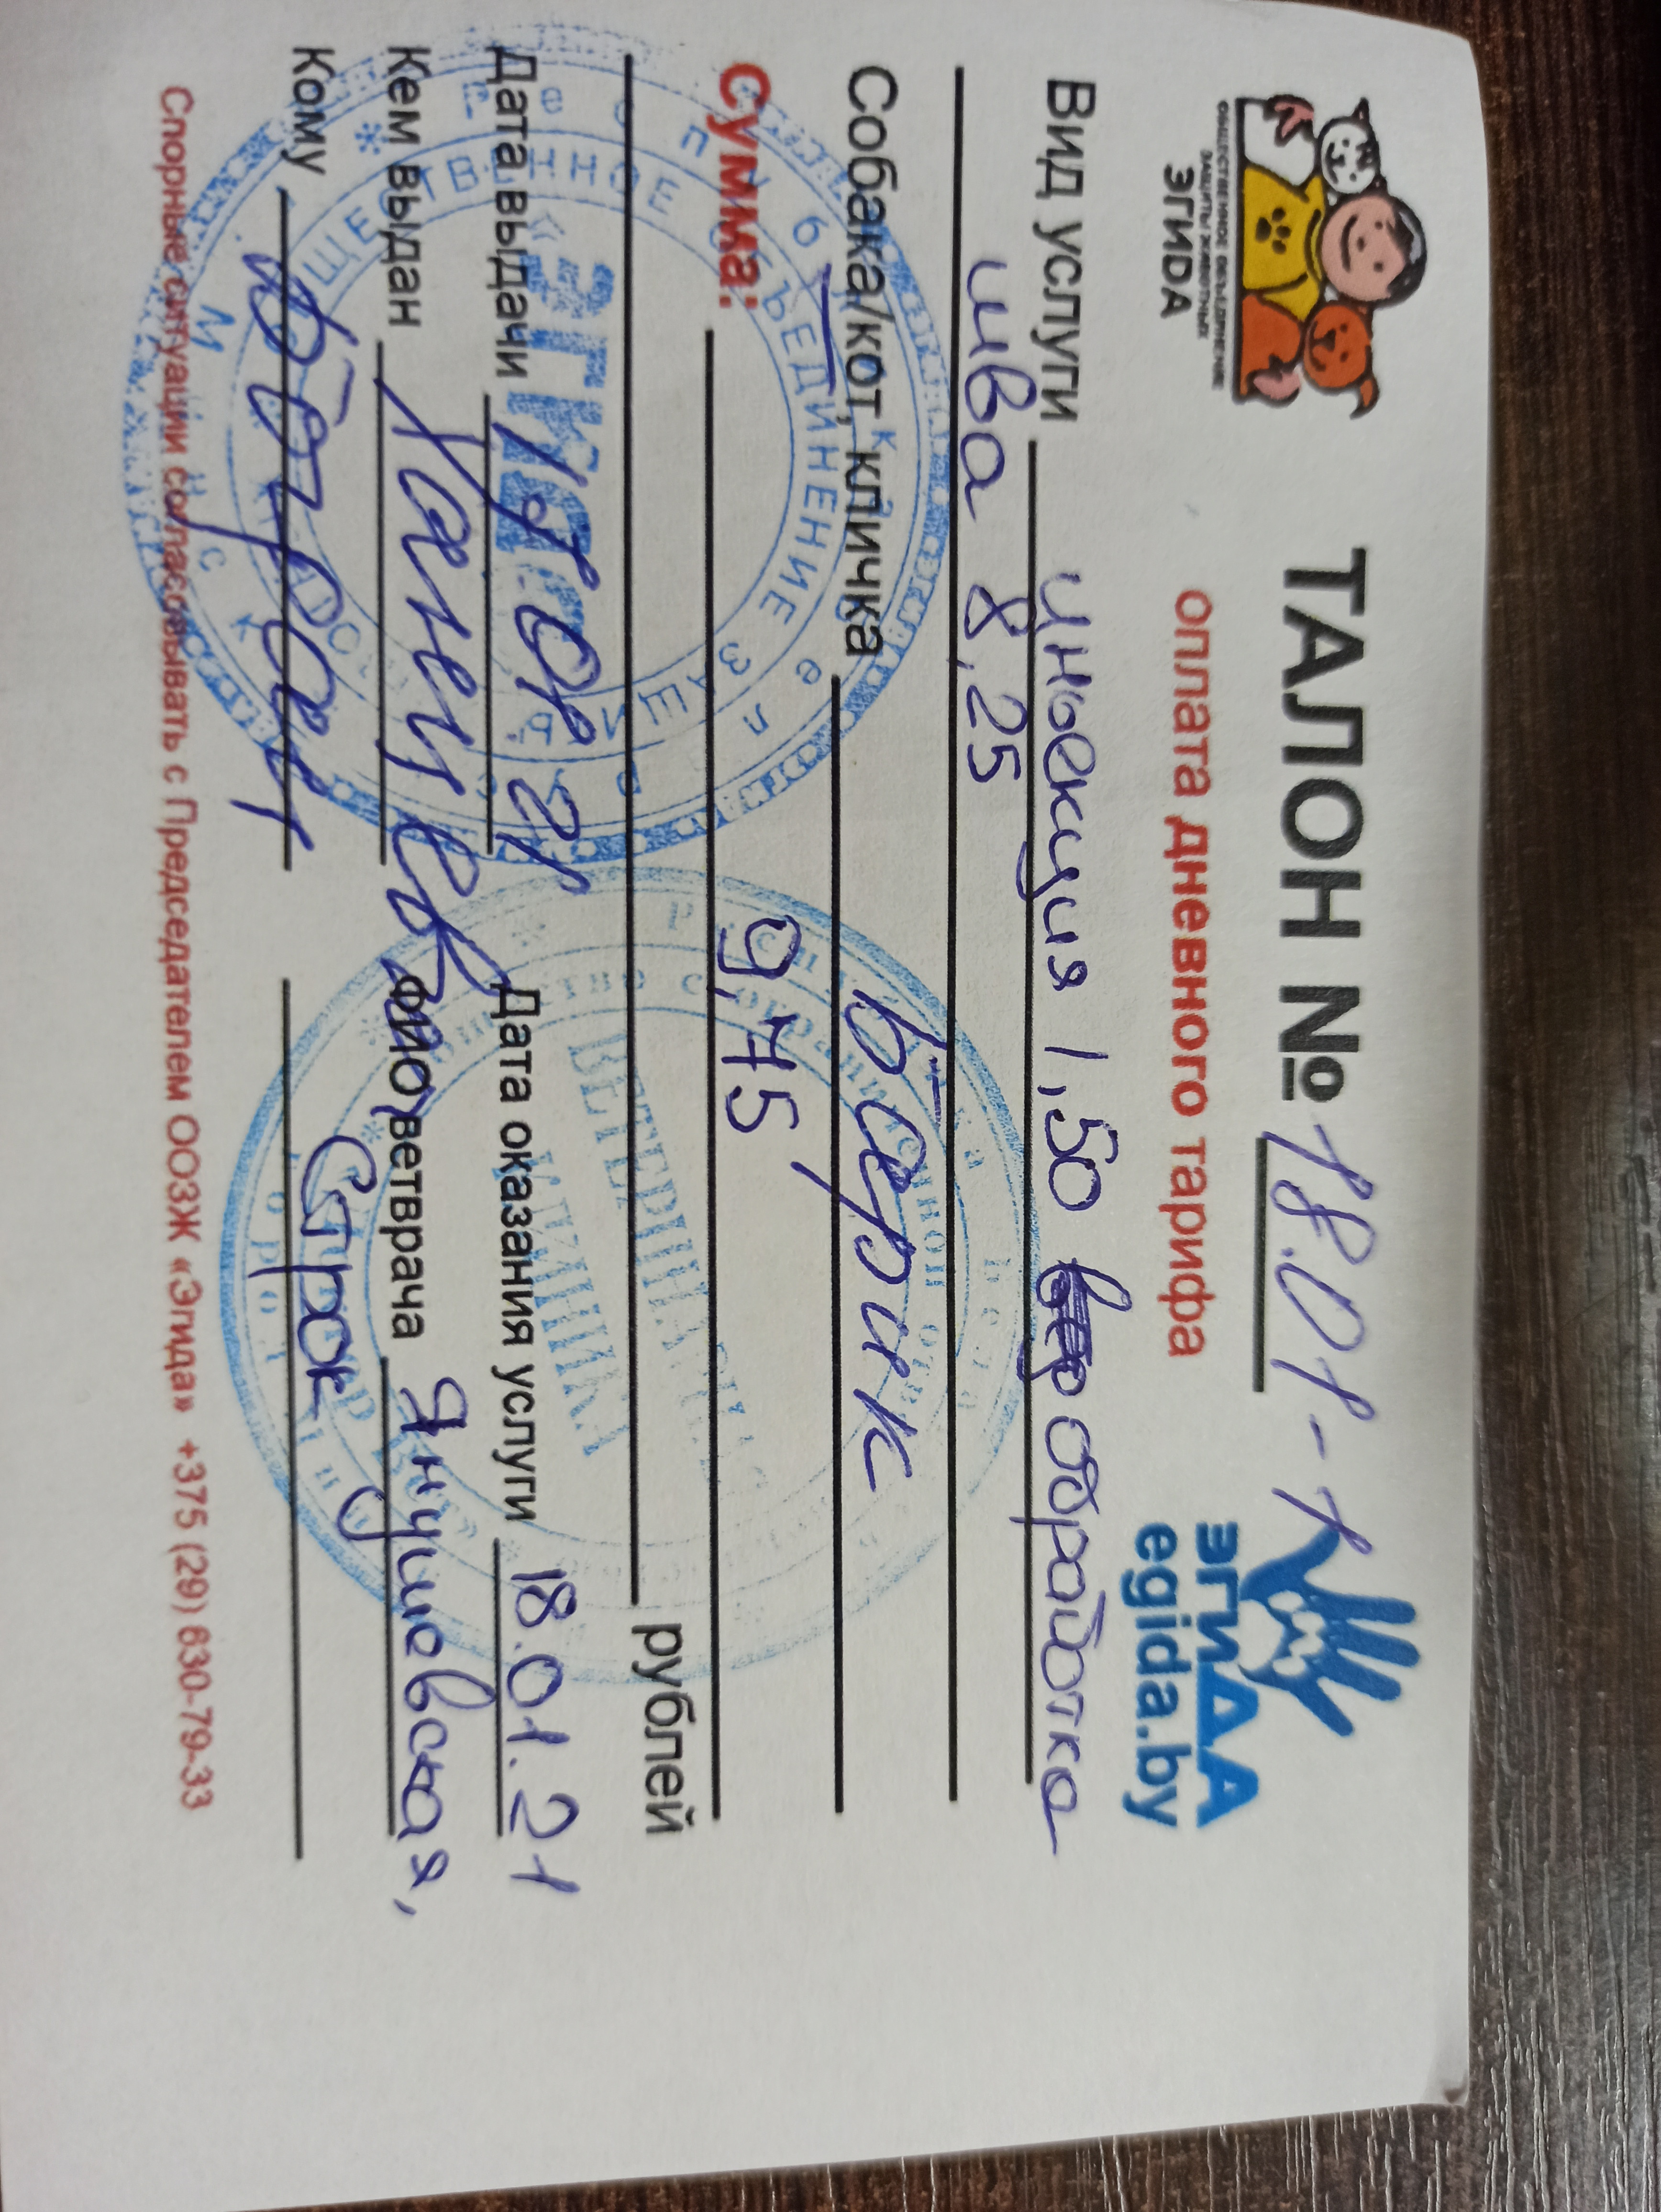 ОБЩЕСТВЕННОЕ ОБЪЕДИНЕНИЕ
ЗАЩИТЫ ЖИВОТНЫХ
ЭГИДА
ТАЛОН № 18.01-1
оплата дневного тарифа
эгиДА
egida.by
Вид услуги инъекция 1,50 обработка
шва 8,25
Собака/кот, кличка Барик
Сумма: 9,75
рублей
Дата выдачи
Дата оказания услуги 18.01.21
Кем выдан
ФИО ветврача Янушевская,
Кому
Строк
Спорные ситуации согласовывать с Председателем ООЗЖ «Эгида» +375 (29) 630-79-33
ОБЩЕСТВЕННОЕ ОБЪЕДИНЕНИЕ ЗАЩИТЫ
«ЭГИДА»
ВЕТЕРИНАРНАЯ
КЛИНИКА